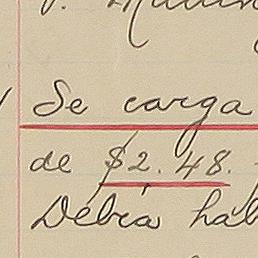 Se carga
de $2.48.
Debia hab